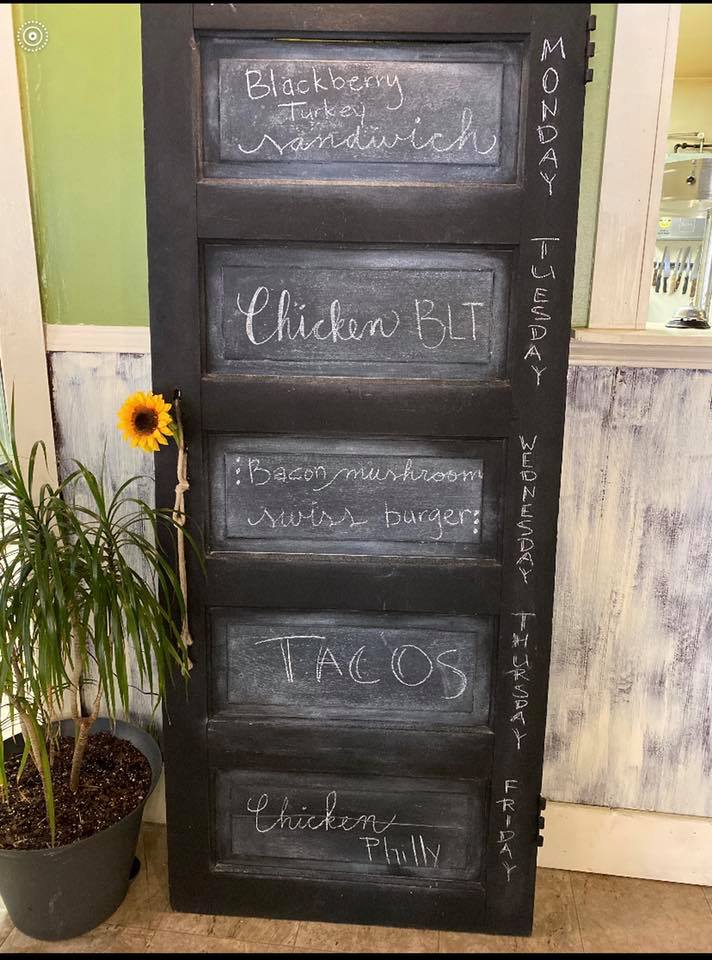 Blackberry
Turkey
sandwich
MONDAY
Chicken BLT
TUESDAY
Bacon mushroom
swiss burger
WEDNESDAY
TACOS
THURSDAY
Chicken
Philly
FRIDAY